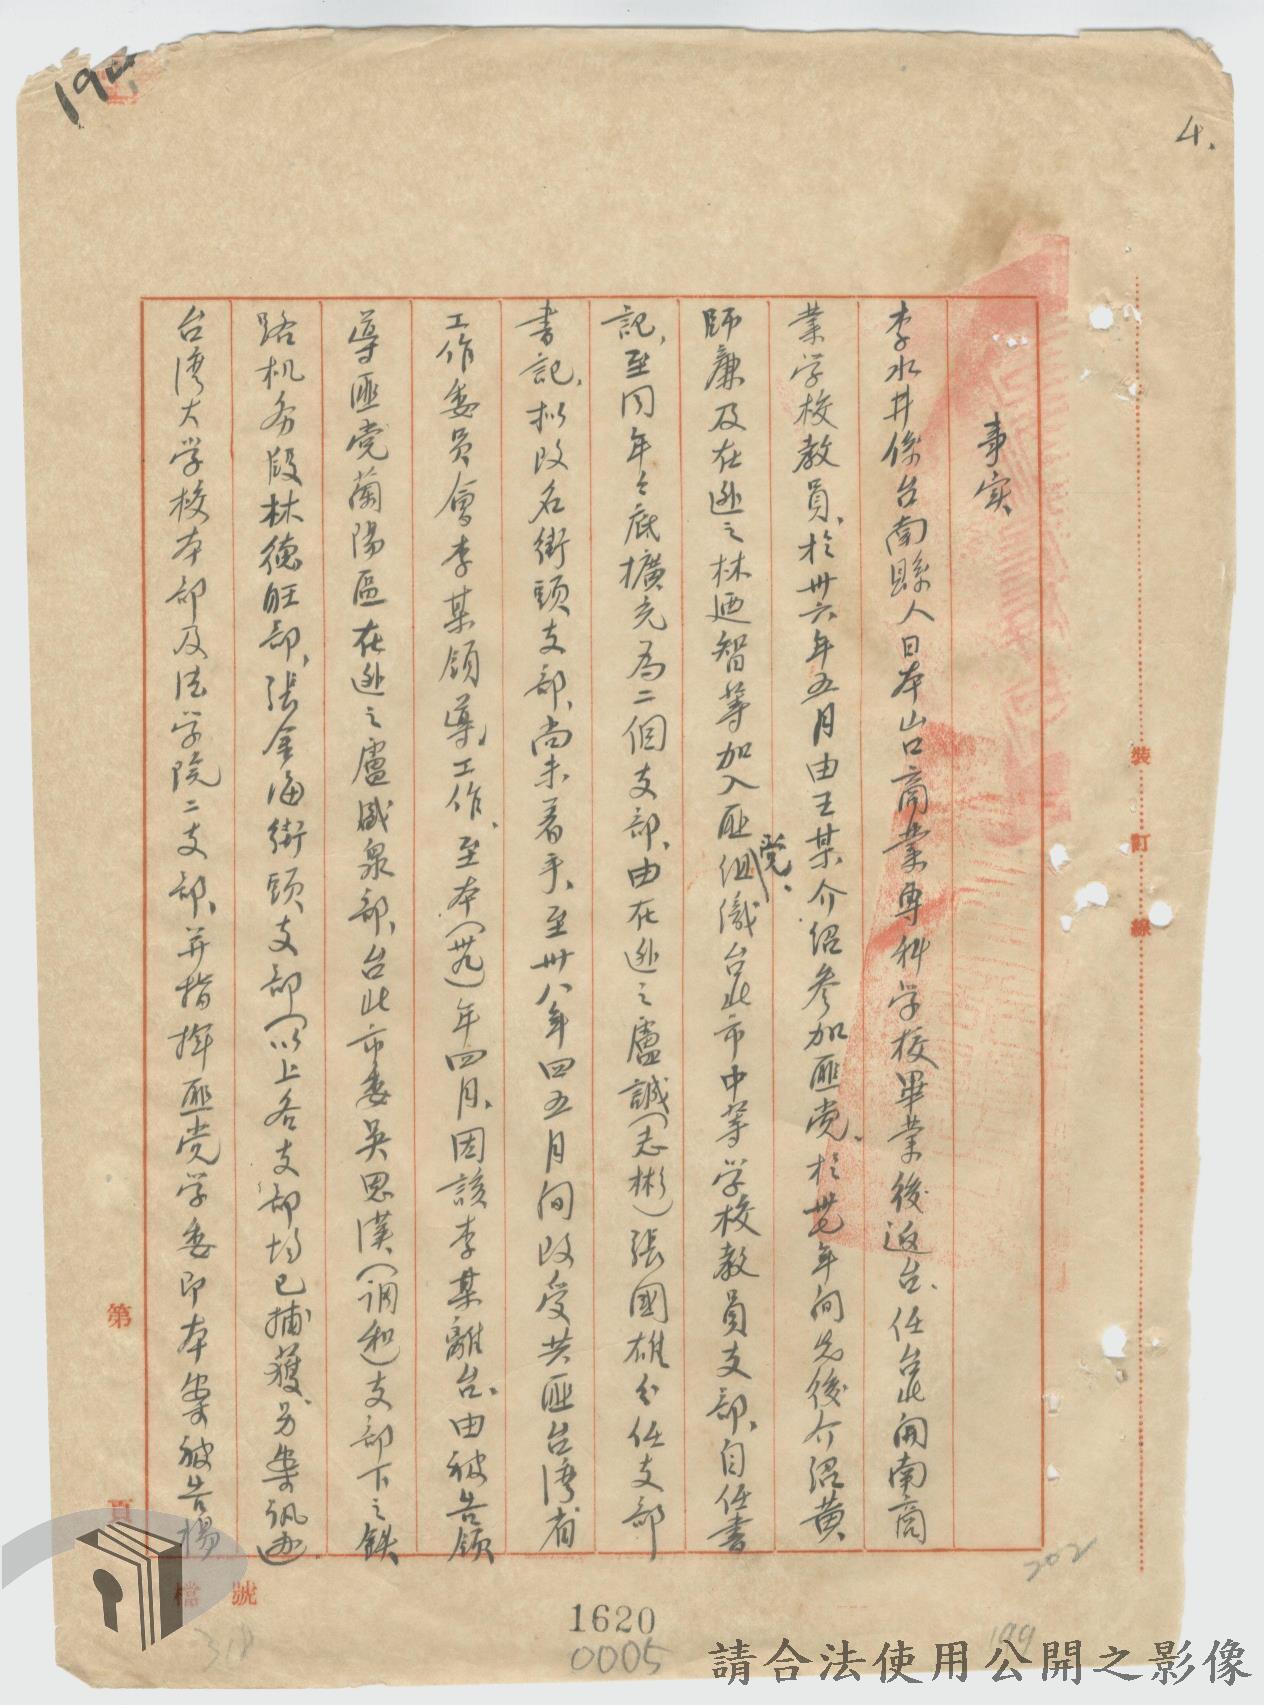 4.
事实
李水井係台南縣人日本山口商業專科学校畢業後返台、任台北開南商
業学校教員、於卅六年五月由王某介绍参加匪党、於卅七年间先後介绍黄
師廉及在逃之林迺智等加入匪党、组織台北市中等学校教員支部、自任書
記、至同年年底擴充為二個支部、由在逃之盧誠（志彬）張國雄分任支部
書記、拟改名街頭支部、尚未着手、至卅八年四五月间改受共匪台湾省
工作委员會李某领導工作、至本（卅九）年四月、因該李某離台、由被告领
導匪党蘭陽區在逃之盧盛泉部、台北市委吴思漢（调和）支部下之鉄
路机务段林德旺部、張金海街頭支部（以上各支部均已捕獲另案讯办
台湾大学校本部及法学院二支部、并指揮匪党学委即本案被告楊
裝訂線
第
頁
檔號
202
1620
0005
199
318
請合法使用公開之影像